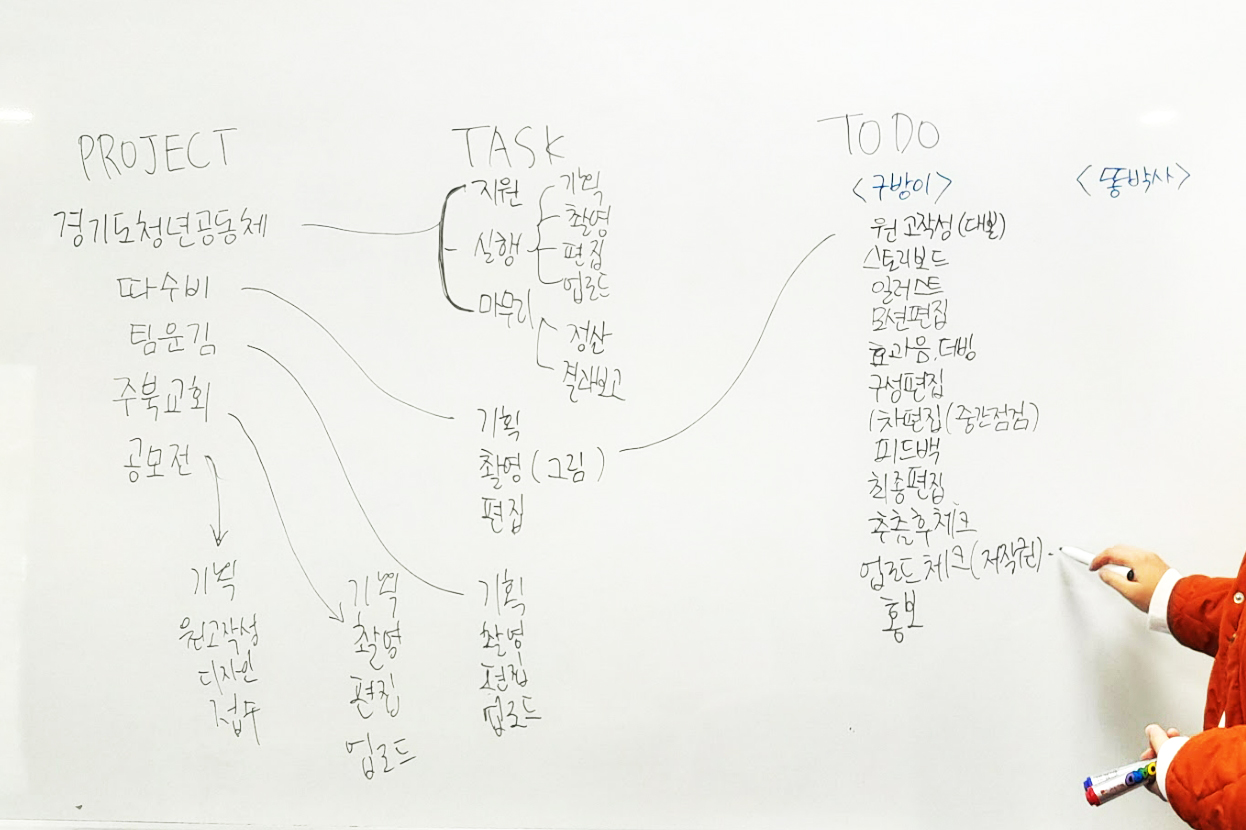 PROJECT
경기도청년공동체
따수비
팀운김
주북교회
공모전
기획
원고작성
디자인
접수
기획
촬영
편집
업로드
TASK
지원
실행
마무리
기획
촬영
편집
업로드
정산
결과보고
기획
촬영(그림)
편집
기획
촬영
편집
업로드
TODO
<구방이>
원고작성(대본)
스토리보드
일러스트
모션편집
효과음,더빙
구성편집
1차편집(중간점검)
피드백
최종편집
추출후체크
업로드체크(저작권)
홍보
<똥박사>